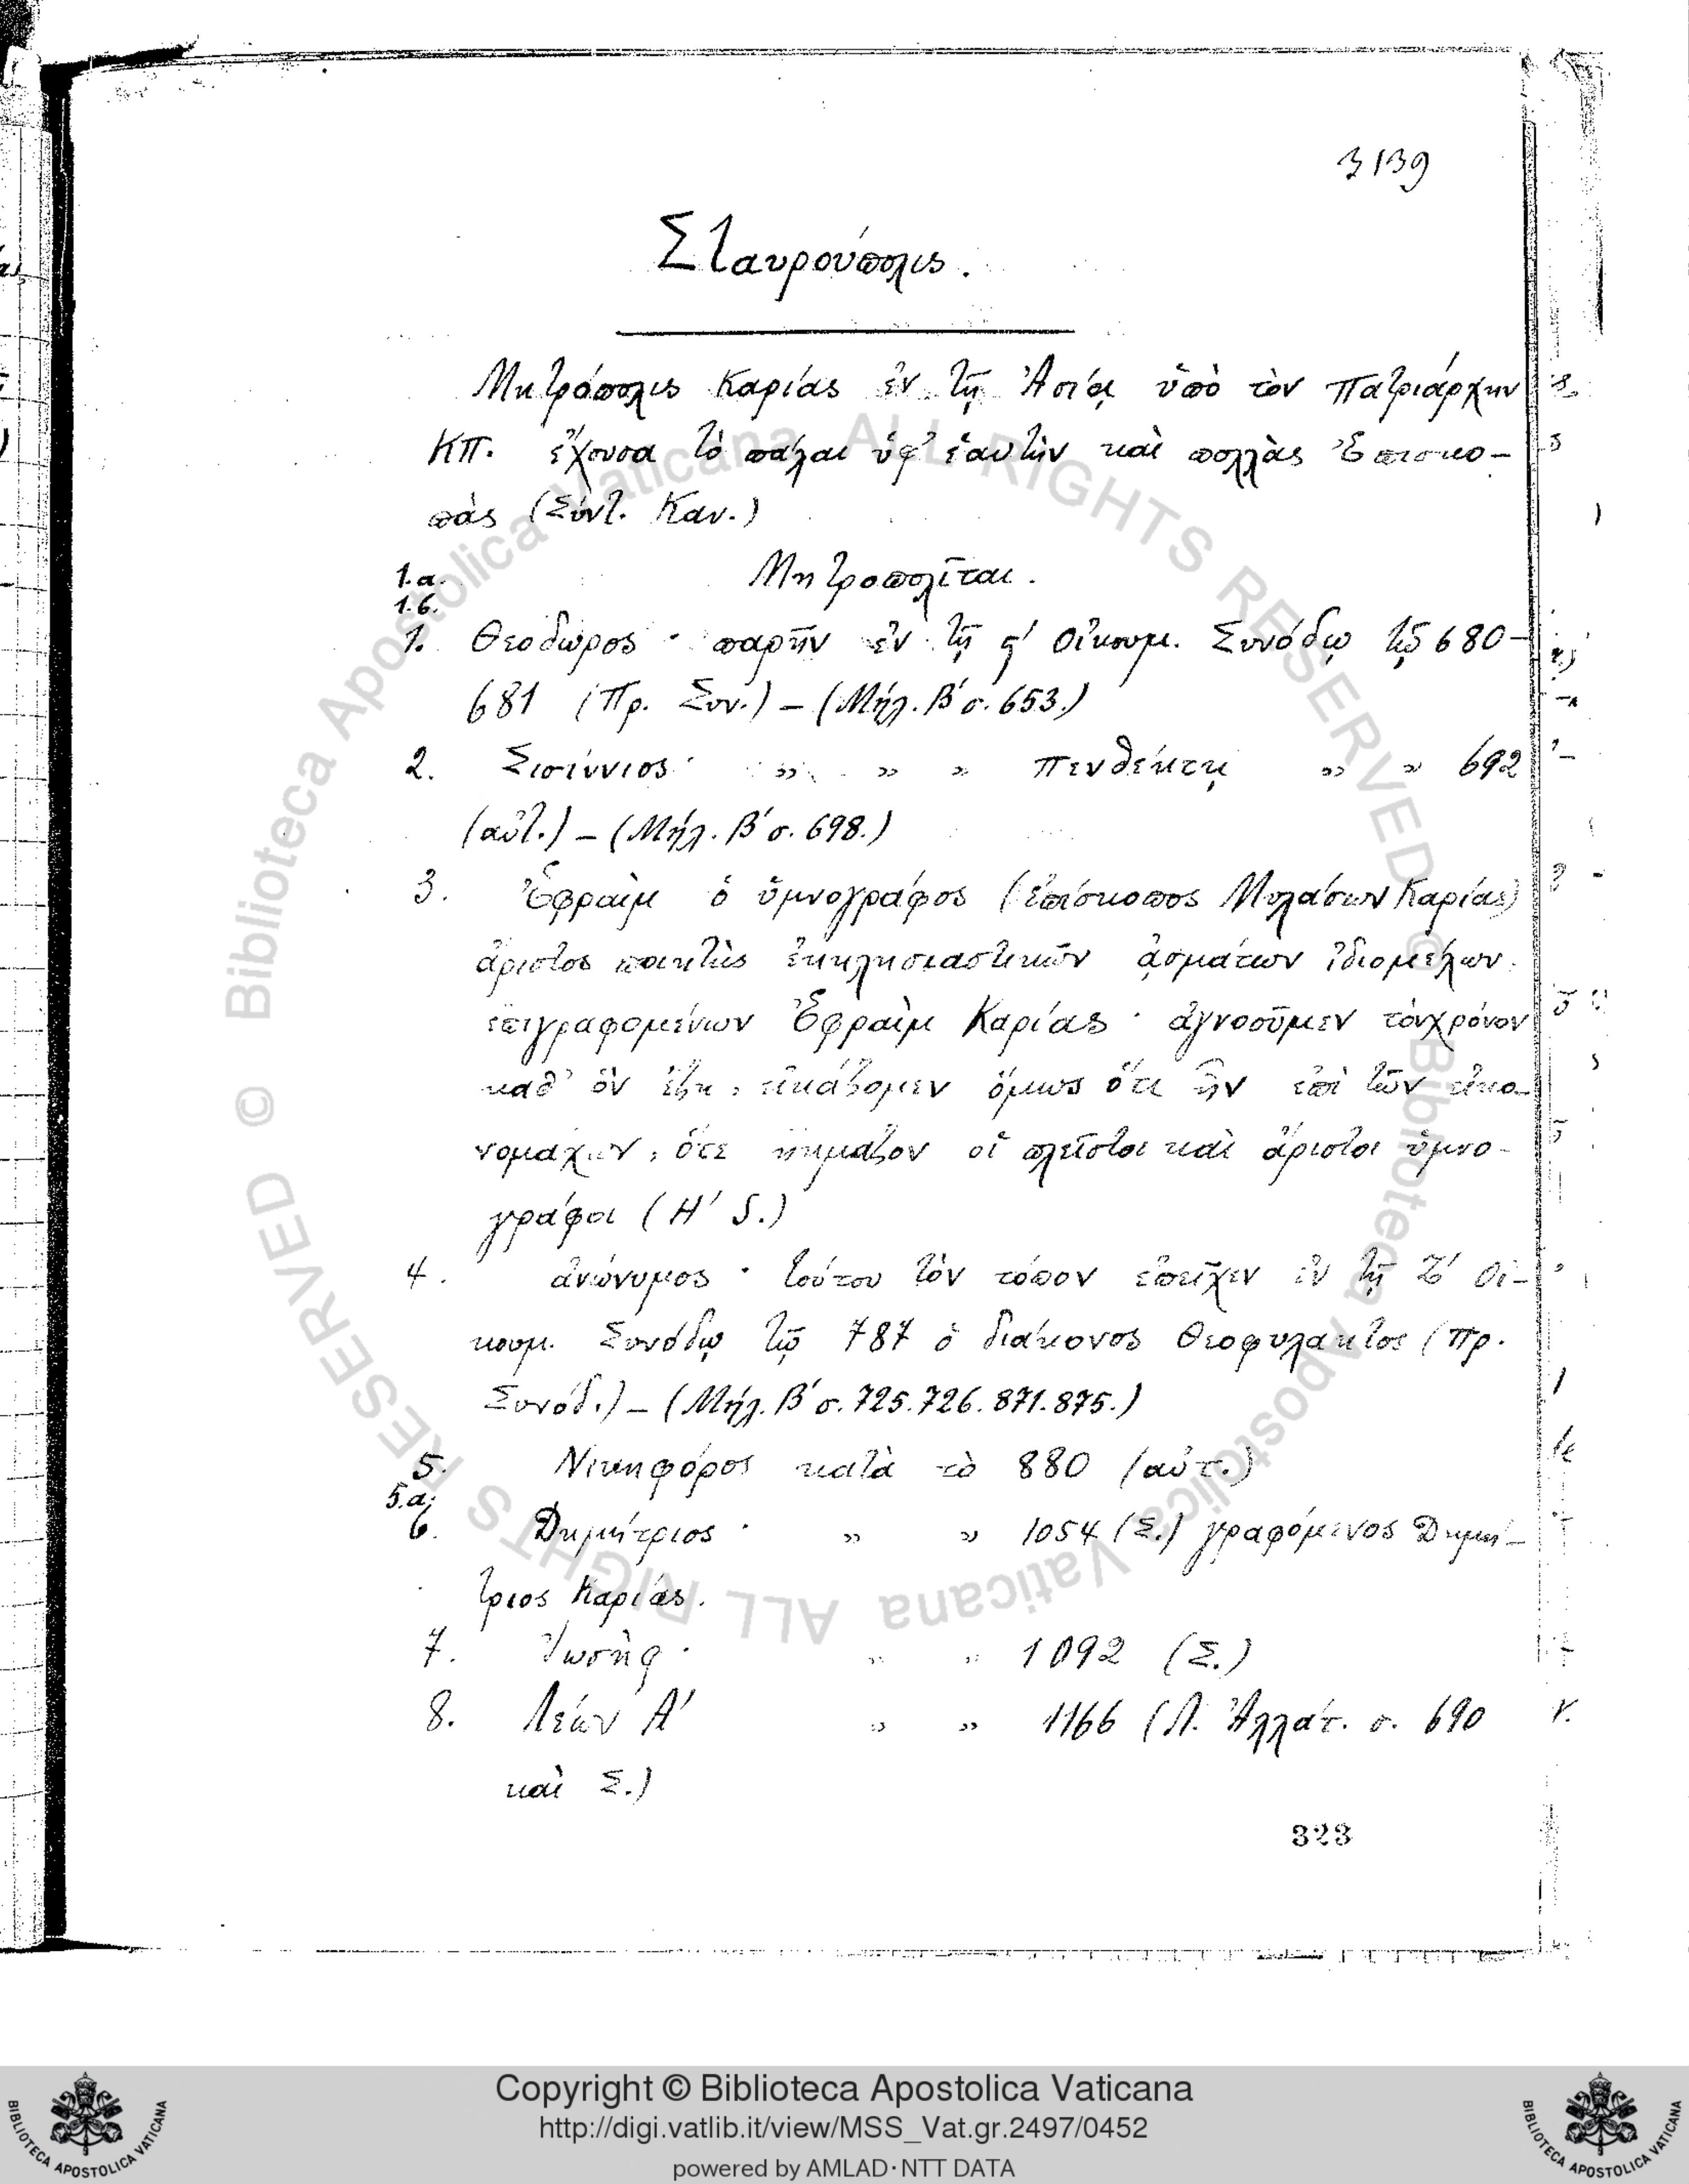 3139
Σταυρούπολις.
Μητρόπολις Καρίας ἐν τῇ Ἀσίᾳ ὑπὸ τὸν Πατριάρχην
ΚΠ. ἔχουσα τὸ πάλαι ὑφ' ἑαυτὴν καὶ πολλὰς Ἐπισκο-
πάς (Σύντ. Καν.)
1.α. Μητροπολῖται.
1.β.
1. Θεοδωρος · παρῆν ἐν τῇ ϛ' Οἰκουμ. Συνόδῳ τῷ 680-
681 (Πρ. Συν.) – (Μήλ. Β' σ. 653.)
2. Σισίννιος · » » » Πενθέκτῃ » » 692
(αὐτ.) – (Μήλ. Β' σ. 698.)
3. Ἐφραὶμ ὁ ὑμνογράφος (ἐπίσκοπος Μυλάσων Καρίας)
ἄριστος ποιητὴς ἐκκλησιαστικῶν ᾀσμάτων ἰδιομέλων
ἐπιγραφομένων Ἐφραὶμ Καρίας · ἀγνοοῦμεν τὸν χρόνον
καθ' ὃν ἔζη, εἰκάζομεν ὅμως ὅτι ἦν ἐπὶ τῶν εἰκο-
νομάχων, ὅτε ἤκμαζον οἱ πλεῖστοι καὶ ἄριστοι ὑμνο-
γράφοι (Η' S.)
4. ἀνώνυμος · τούτου τὸν τόπον ἐπεῖχεν ἐν τῇ Ζ' Οἰ-
κουμ. Συνόδῳ τῷ 787 ὁ διάκονος Θεοφυλακτος (Πρ.
Συνόδ.) – (Μήλ. Β' σ. 725. 726. 871. 875.)
5. Νικηφόρος κατὰ τὸ 880 (αὐτ.)
5.α.
6. Δημήτριος · » » 1054 (Σ.) γραφόμενος Δημή-
τριος Καρίας.
7. Ἰωσὴφ · » » 1092 (Σ.)
8. Λέων Α' » » 1166 (Λ. Ἀλλάτ. σ. 690
καὶ Σ.)
323
© Biblioteca Apostolica Vaticana ALL RIGHTS RESERVED © Biblioteca Apostolica Vaticana ALL RIGHTS RESERVED
Copyright © Biblioteca Apostolica Vaticana
http://digi.vatlib.it/view/MSS_Vat.gr.2497/0452
powered by AMLAD·NTT DATA
BIBLIOTECA APOSTOLICA VATICANA
BIBLIOTECA APOSTOLICA VATICANA